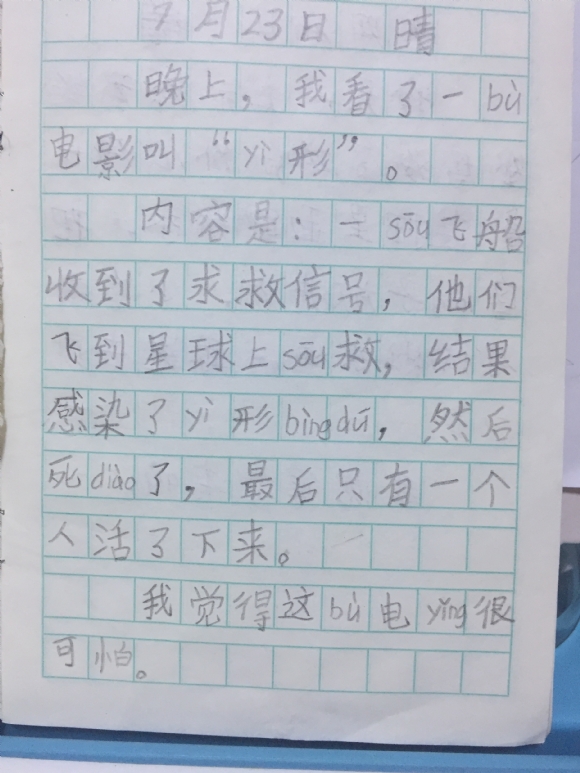 7月23日 晴
晚上，我看了一bù
电影叫“yì形”。
内容是：一sōu飞船
收到了求救信号，他们
飞到星球上sōu救，结果
感染了yì形bìngdú，然后
死diào了，最后只有一个
人活了下来。
我觉得这bù电yǐng很
可怕。